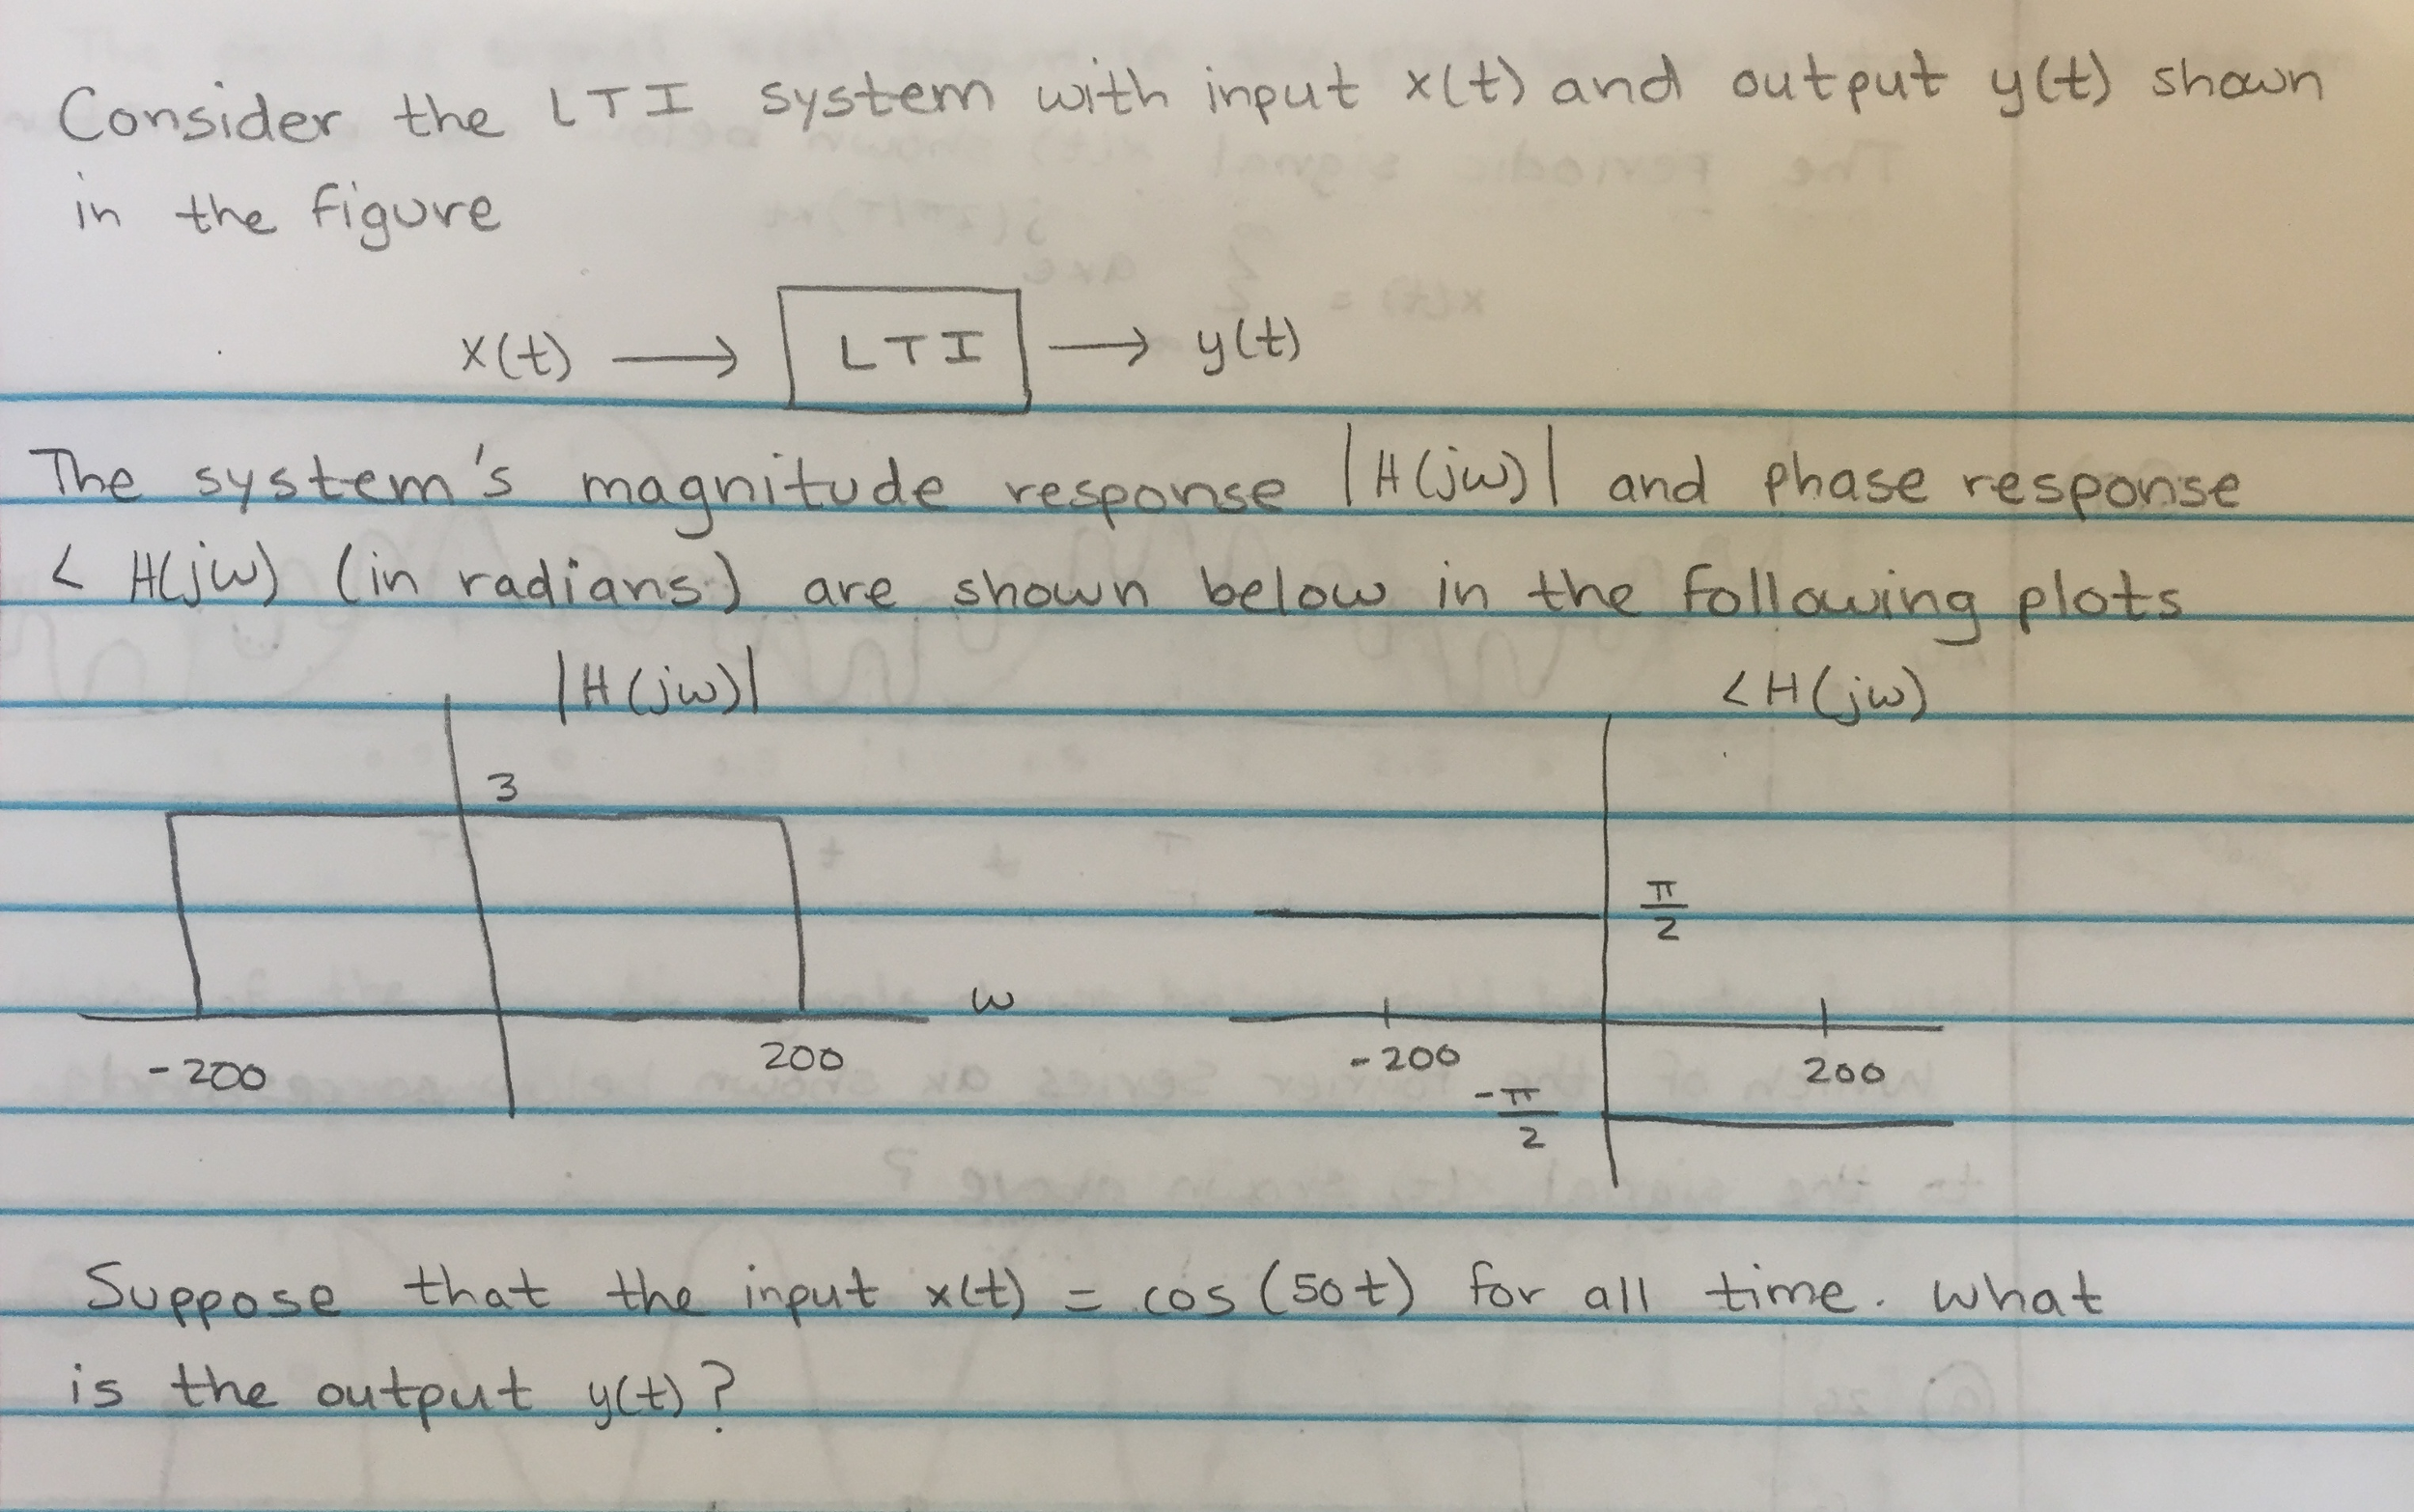 Consider the LTI system with input x(t) and output y(t) shown
in the figure
x(t) → LTI → y(t)
The system's magnitude response |H(jω)| and phase response
< H(jω) (in radians) are shown below in the following plots
|H(jω)|
<H(jω)
3
π/2
ω
-200
200
-200
200
-π/2
Suppose that the input x(t) = cos(50t) for all time. What
is the output y(t)?